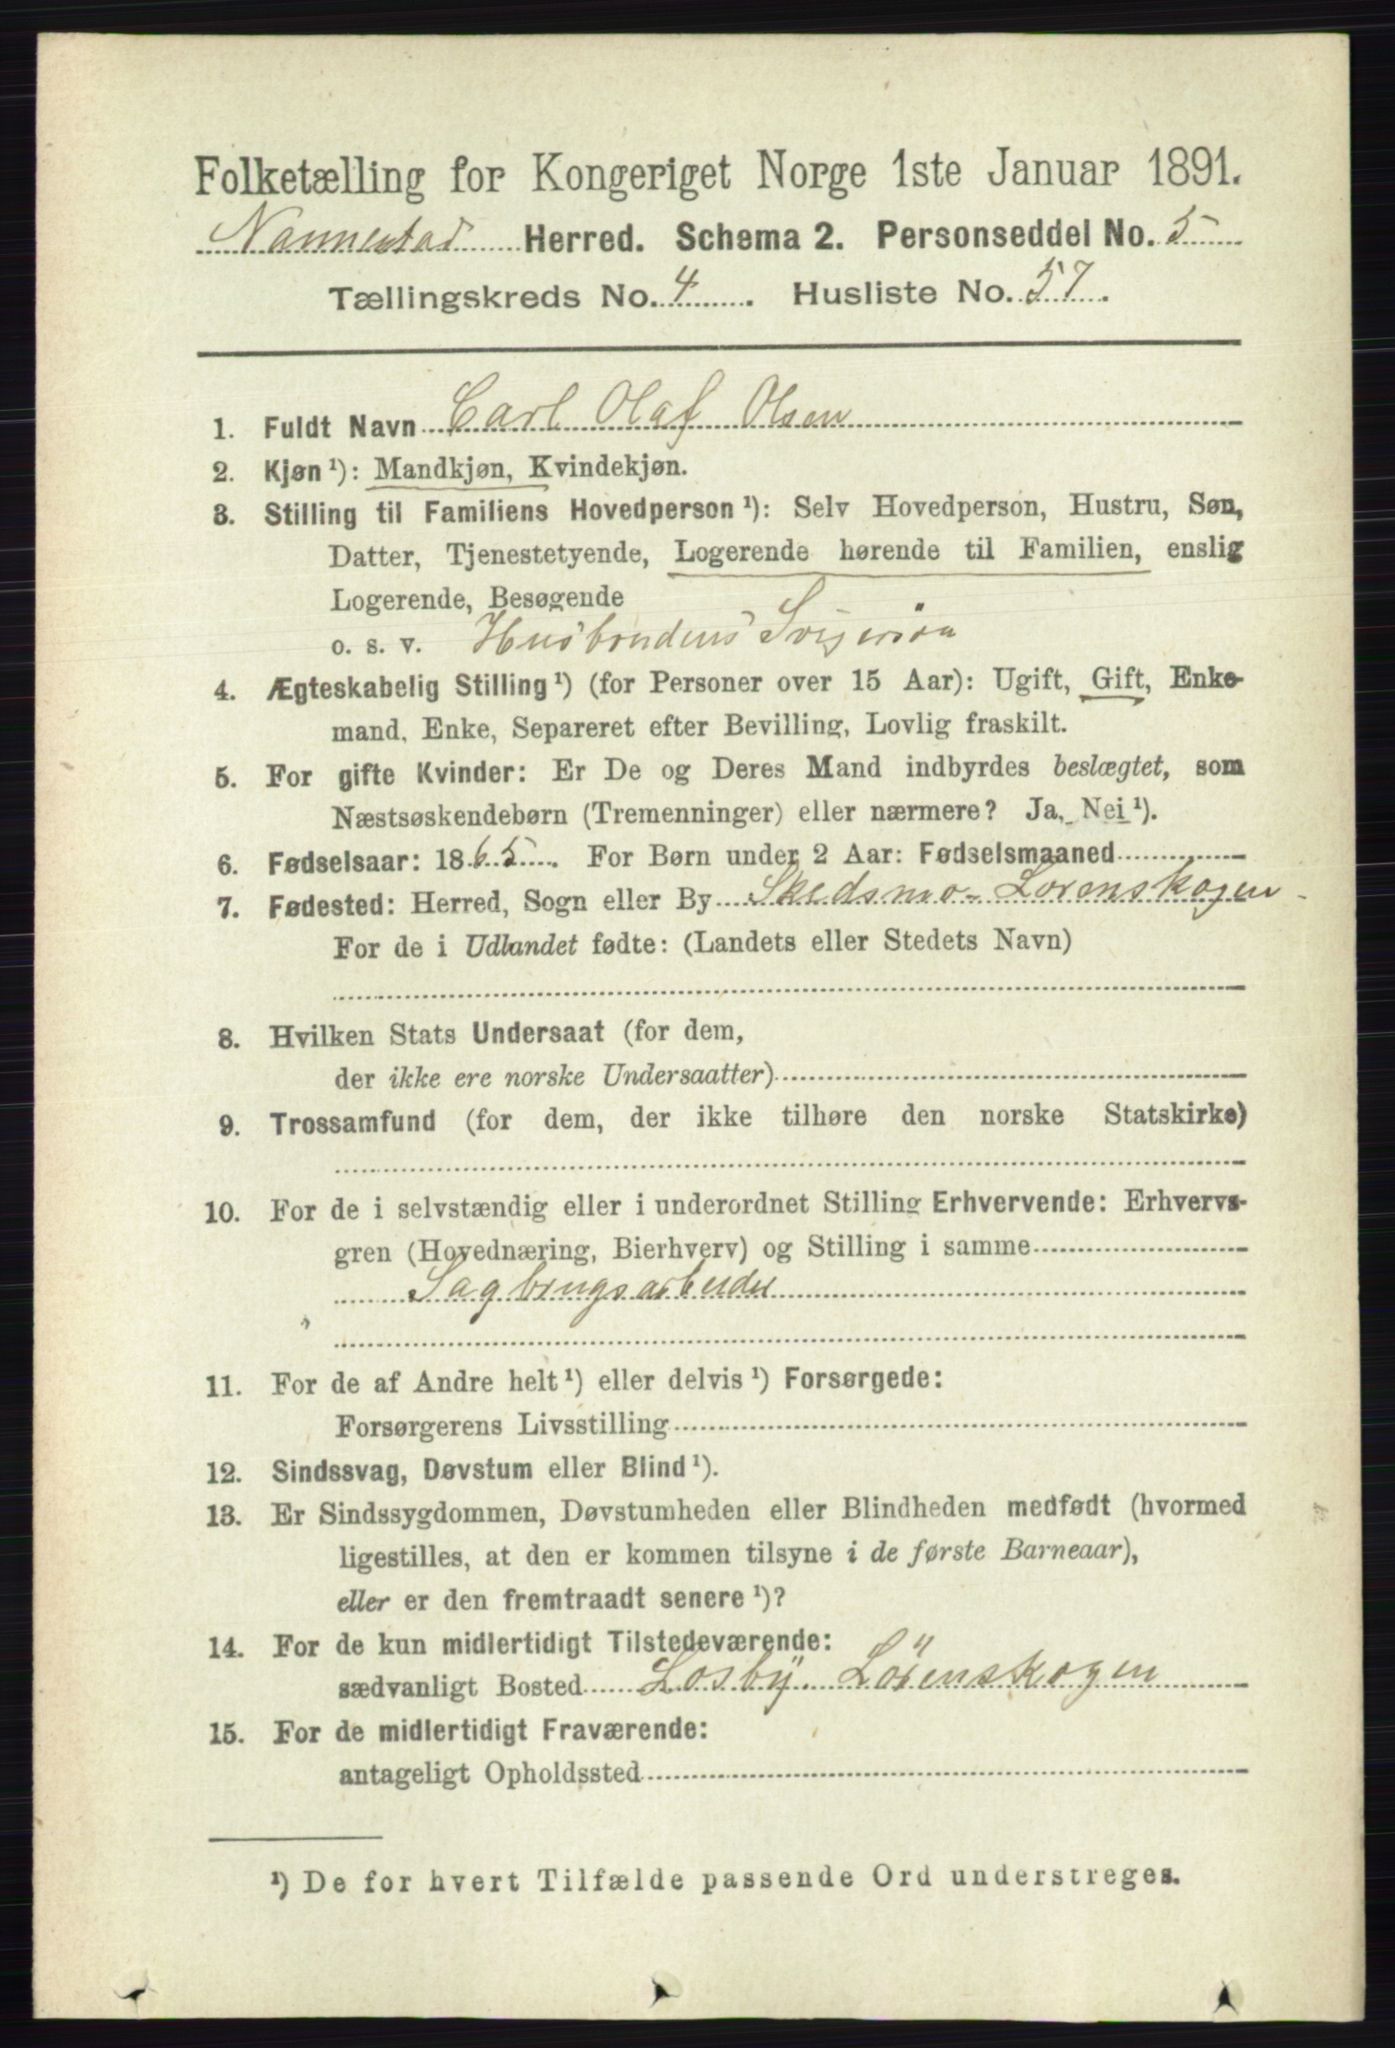 Folketælling for Kongeriget Norge 1ste Januar 1891.
Nannestad Herred. Schema 2. Personseddel No. 5
Tællingskreds No. 4. Husliste No. 57.
1. Fuldt Navn Carl Olaf Olsen
2. Kjøn ¹): Mandkjøn, Kvindekjøn.
3. Stilling til Familiens Hovedperson ¹): Selv Hovedperson, Hustru, Søn,
Datter, Tjenestetyende, Logerende hørende til Familien, enslig
Logerende, Besøgende
o. s. v. Husbondens Svigersön
4. Ægteskabelig Stilling ¹) (for Personer over 15 Aar): Ugift, Gift, Enke-
mand, Enke, Separeret efter Bevilling, Lovlig fraskilt.
5. For gifte Kvinder: Er De og Deres Mand indbyrdes beslægtet, som
Næstsøskendebørn (Tremenninger) eller nærmere? Ja, Nei ¹).
6. Fødselsaar: 1865. For Børn under 2 Aar: Fødselsmaaned
7. Fødested: Herred, Sogn eller By Skedsmo - Lorenskogen -
For de i Udlandet fødte: (Landets eller Stedets Navn)
8. Hvilken Stats Undersaat (for dem,
der ikke ere norske Undersaatter)
9. Trossamfund (for dem, der ikke tilhøre den norske Statskirke)
10. For de i selvstændig eller i underordnet Stilling Erhvervende: Erhvervs-
gren (Hovednæring, Bierhverv) og Stilling i samme
Sagbrugsarbeider
11. For de af Andre helt ¹) eller delvis ¹) Forsørgede:
Forsørgerens Livsstilling
12. Sindssvag, Døvstum eller Blind ¹).
13. Er Sindssygdommen, Døvstumheden eller Blindheden medfødt (hvormed
ligestilles, at den er kommen tilsyne i de første Barneaar),
eller er den fremtraadt senere ¹)?
14. For de kun midlertidigt Tilstedeværende:
sædvanligt Bosted Losby. Lörenskogen
15. For de midlertidigt Fraværende:
antageligt Opholdssted
¹) De for hvert Tilfælde passende Ord understreges.